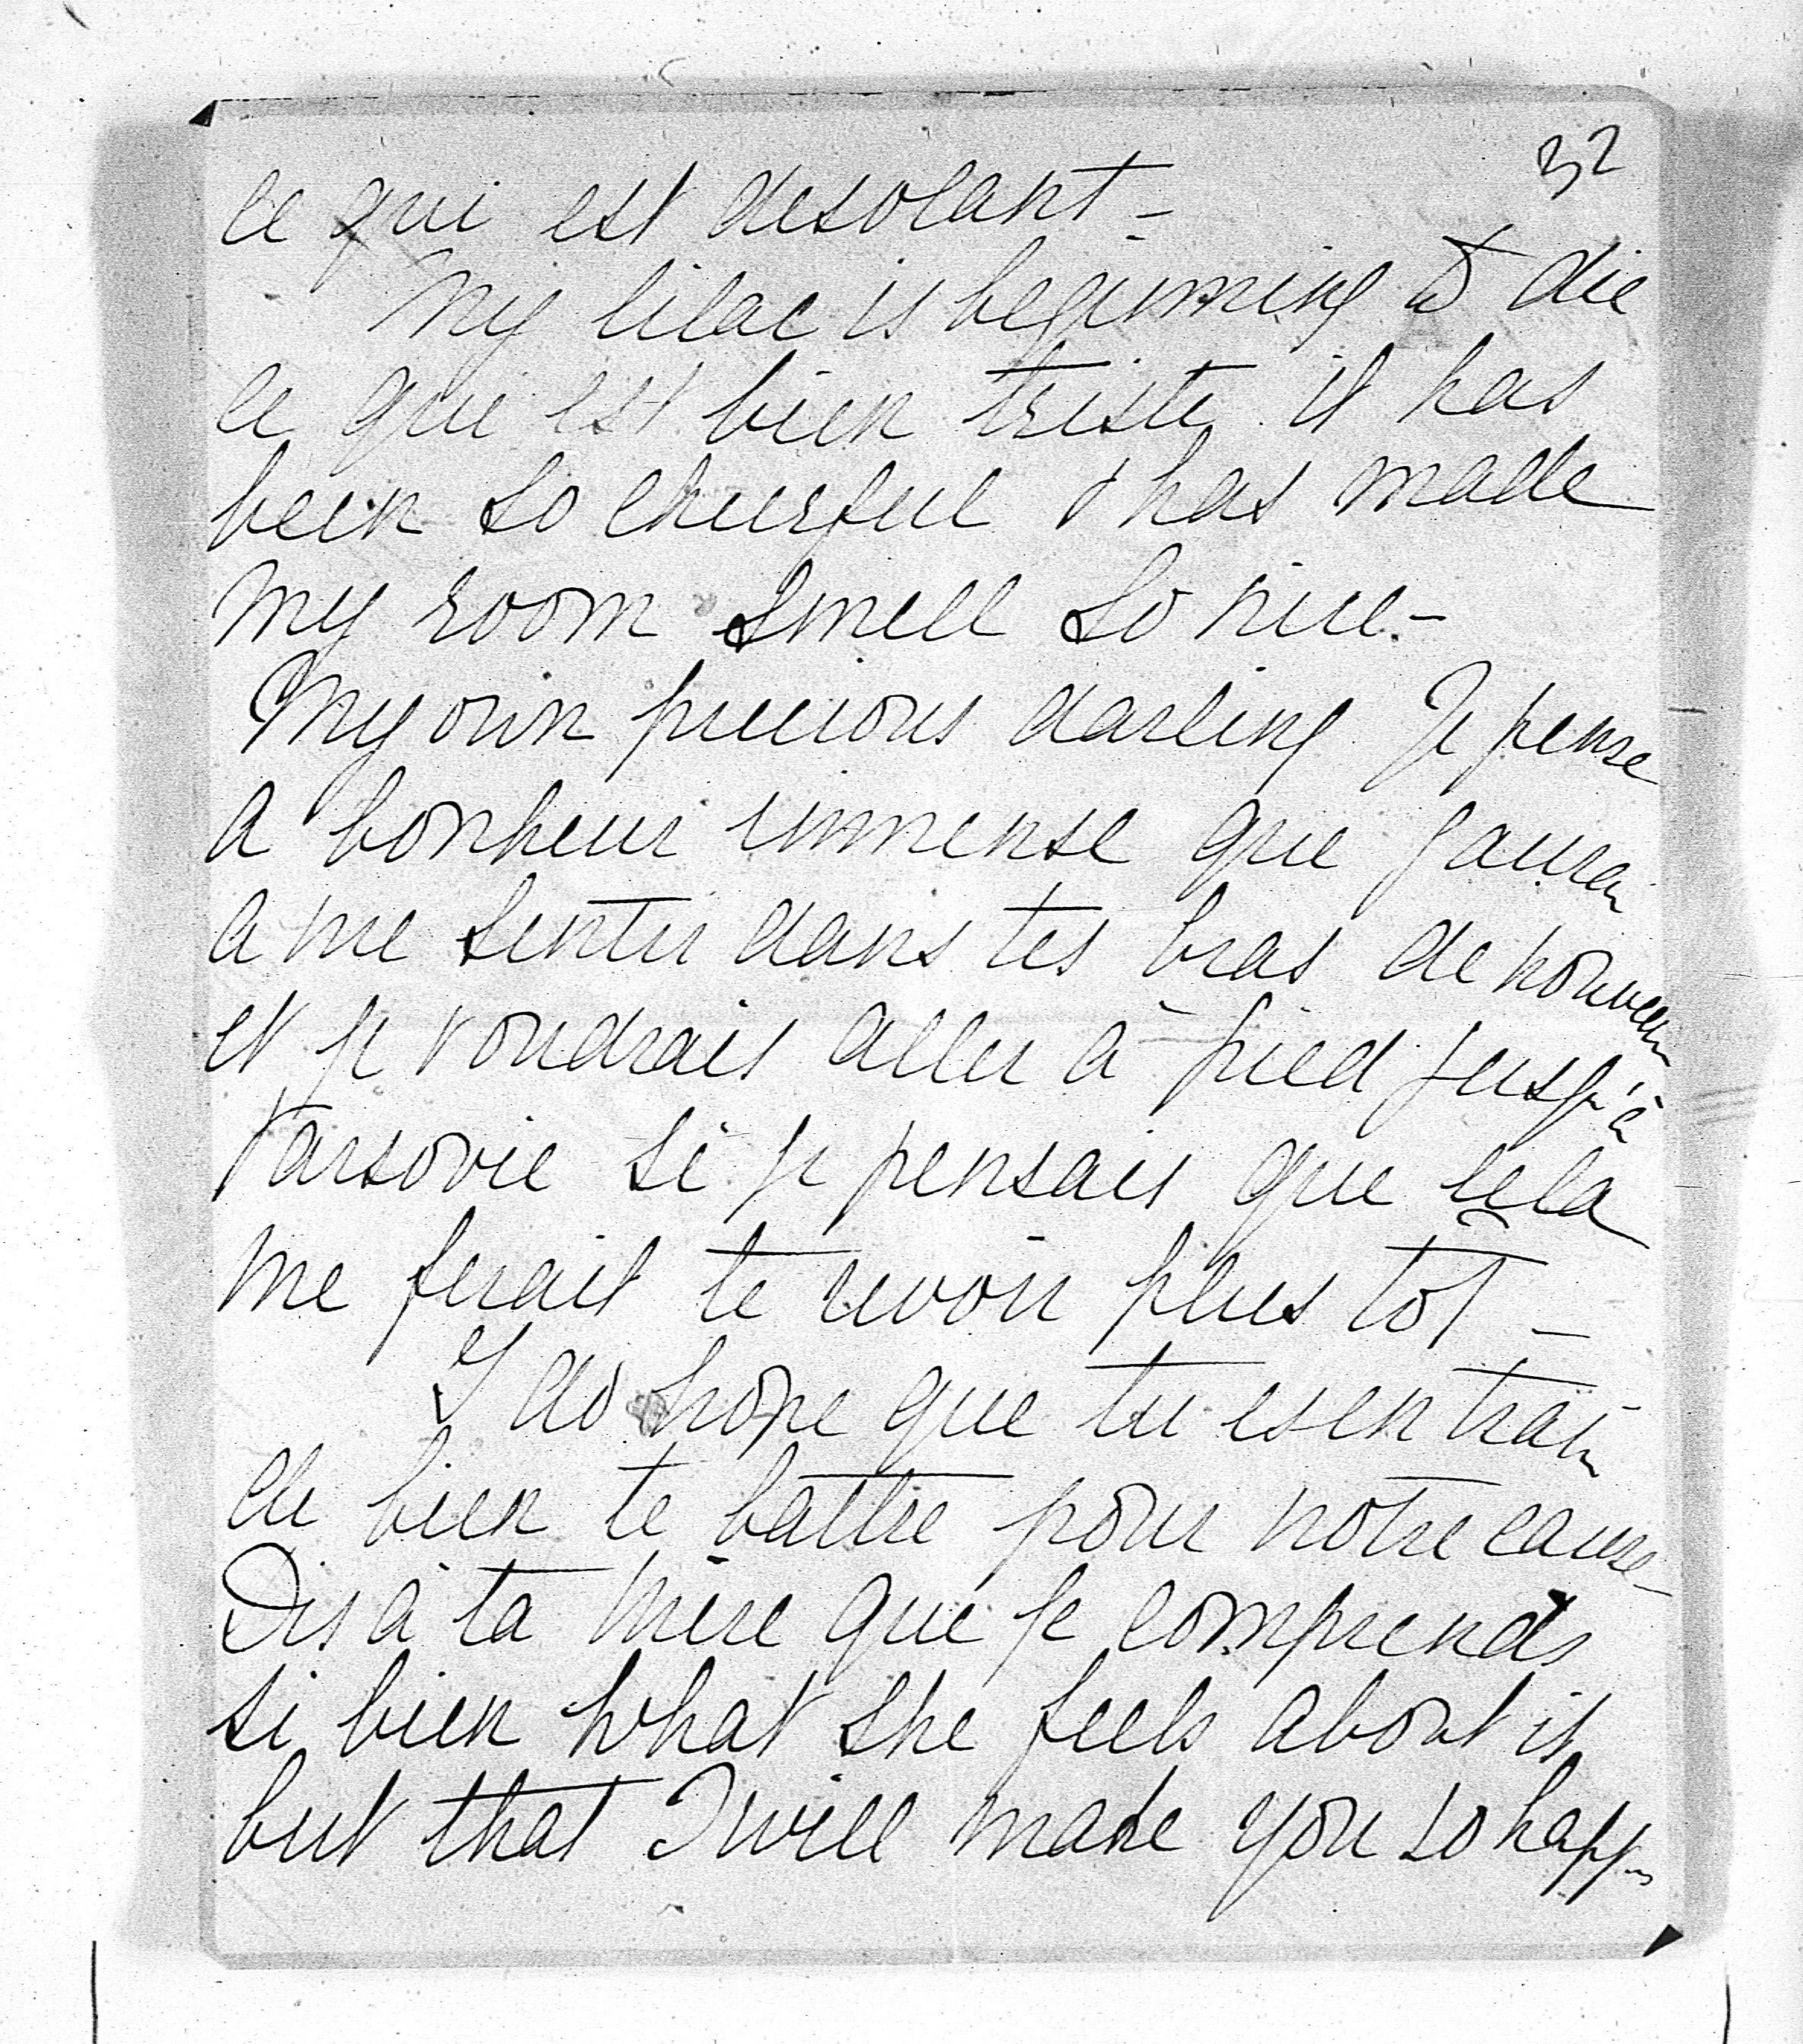 32
ce qui est desolant –
My lilac is beginning to die
ce qui est bien triste it has
been so cheerful & has made
my room smell so nice –
My own precious darling Je pense
a bonheur immense que j'aurai
a me sentir dans tes bras de nouveau
et je voudrais aller à pied jusqu'à
Varsovie si je pensais que cela
me ferait te revoir plus tôt –
I do hope que tu es en train
de bien te battre pour notre cause –
Dis à ta mère que je comprends
si bien what she feels about it
but that I will make you so happy